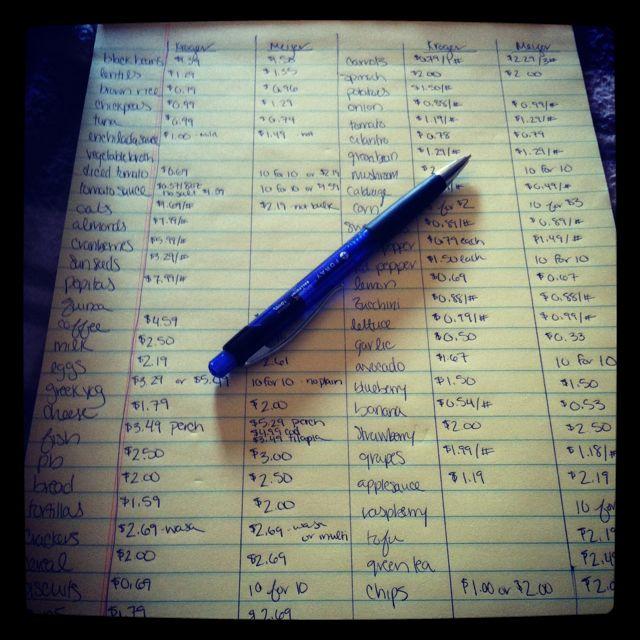 Kroger Meijer Kroger Meijer
black beans carrots $2.29/3#
lentils $1.29 $1.35 spinach $2.00 $2.00
brown rice $0.79 $0.96 potatoes $1.50/#
chickpeas $0.99 $1.29 onion $0.88/# $0.99/#
tuna $0.99 $0.74 tomato $1.19/# $1.29/#
enchilada sauce $1.00 $1.49 cilantro $0.78 $0.79
vegetable broth green bean $1.29/# $1.29/#
diced tomato $0.69 10 for 10 or $2.19 mushroom 10 for 10
tomato sauce no salt $1.09 10 for 10 or $1.59 cabbage $0.49/#
oats $1.69/# $2.19 - not bulk corn for $2 10 for $3
almonds $7.99/# $0.89/# $0.89/#
cranberries $5.99/# pepper $0.79 each $1.49/#
sun seeds $3.29/# pepper $1.50 each 10 for 10
pepitas $7.99/# lemon $0.69 $0.67
quinoa zucchini $0.88/# $0.88/#
coffee $4.59 lettuce $0.99/# $0.99/#
milk $2.50 garlic $0.50 $0.33
eggs $2.19 2.61 avocado $1.67 10 for 10
greek yog $3.29 or 10 for 10 - no plain blueberry $1.50 $1.50
cheese $1.79 $2.00 banana $0.54/# $0.53
fish $3.49 perch $5.29 perch $4.99 cod $3.49 tilapia strawberry $2.00 $2.50
pb $2.50 $3.00 grapes $1.99/# $1.18/#
bread $2.00 $2.50 applesauce $1.19 $2.19
tortillas $1.59 $2.00 raspberry 10 for
crackers $2.69 - wasa $2.69 - wasa or multi tofu
$2.00 $2.69 green tea
biscuits $0.69 10 for 10 chips $1.00 or $2.00
$1.79 $2.69